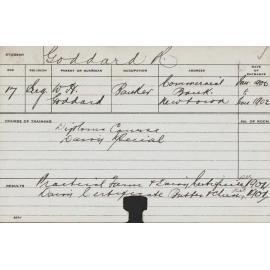 STUDENT Goddard R.
AGE RELIGION PARENT OR GUARDIAN OCCUPATION ADDRESS DATE OF ENTRANCE
17 W. H. Goddard Banker Commercial Bank Newtown Jan 1900 to June 1902
COURSE OF TRAINING NO. OF ROOM
Diploma Course
Dairy Special
RESULTS Practical Farm & Dairy Certificate 1902
Dairy Certificate Butter & Cheese